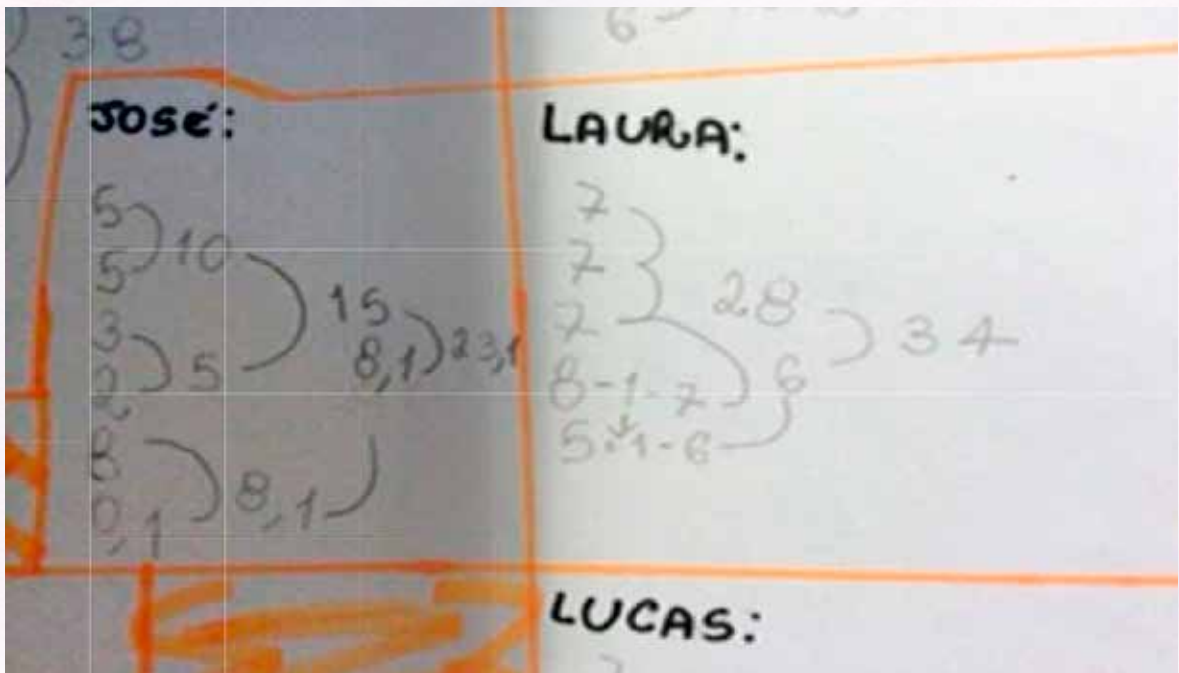 38
6
JOSÉ:
5
5
10
3
2
5
15
8,1
23,1
8
0,1
8,1
LAURA:
7
7
7
8-1-7
5+1-6
28
6
34
LUCAS: